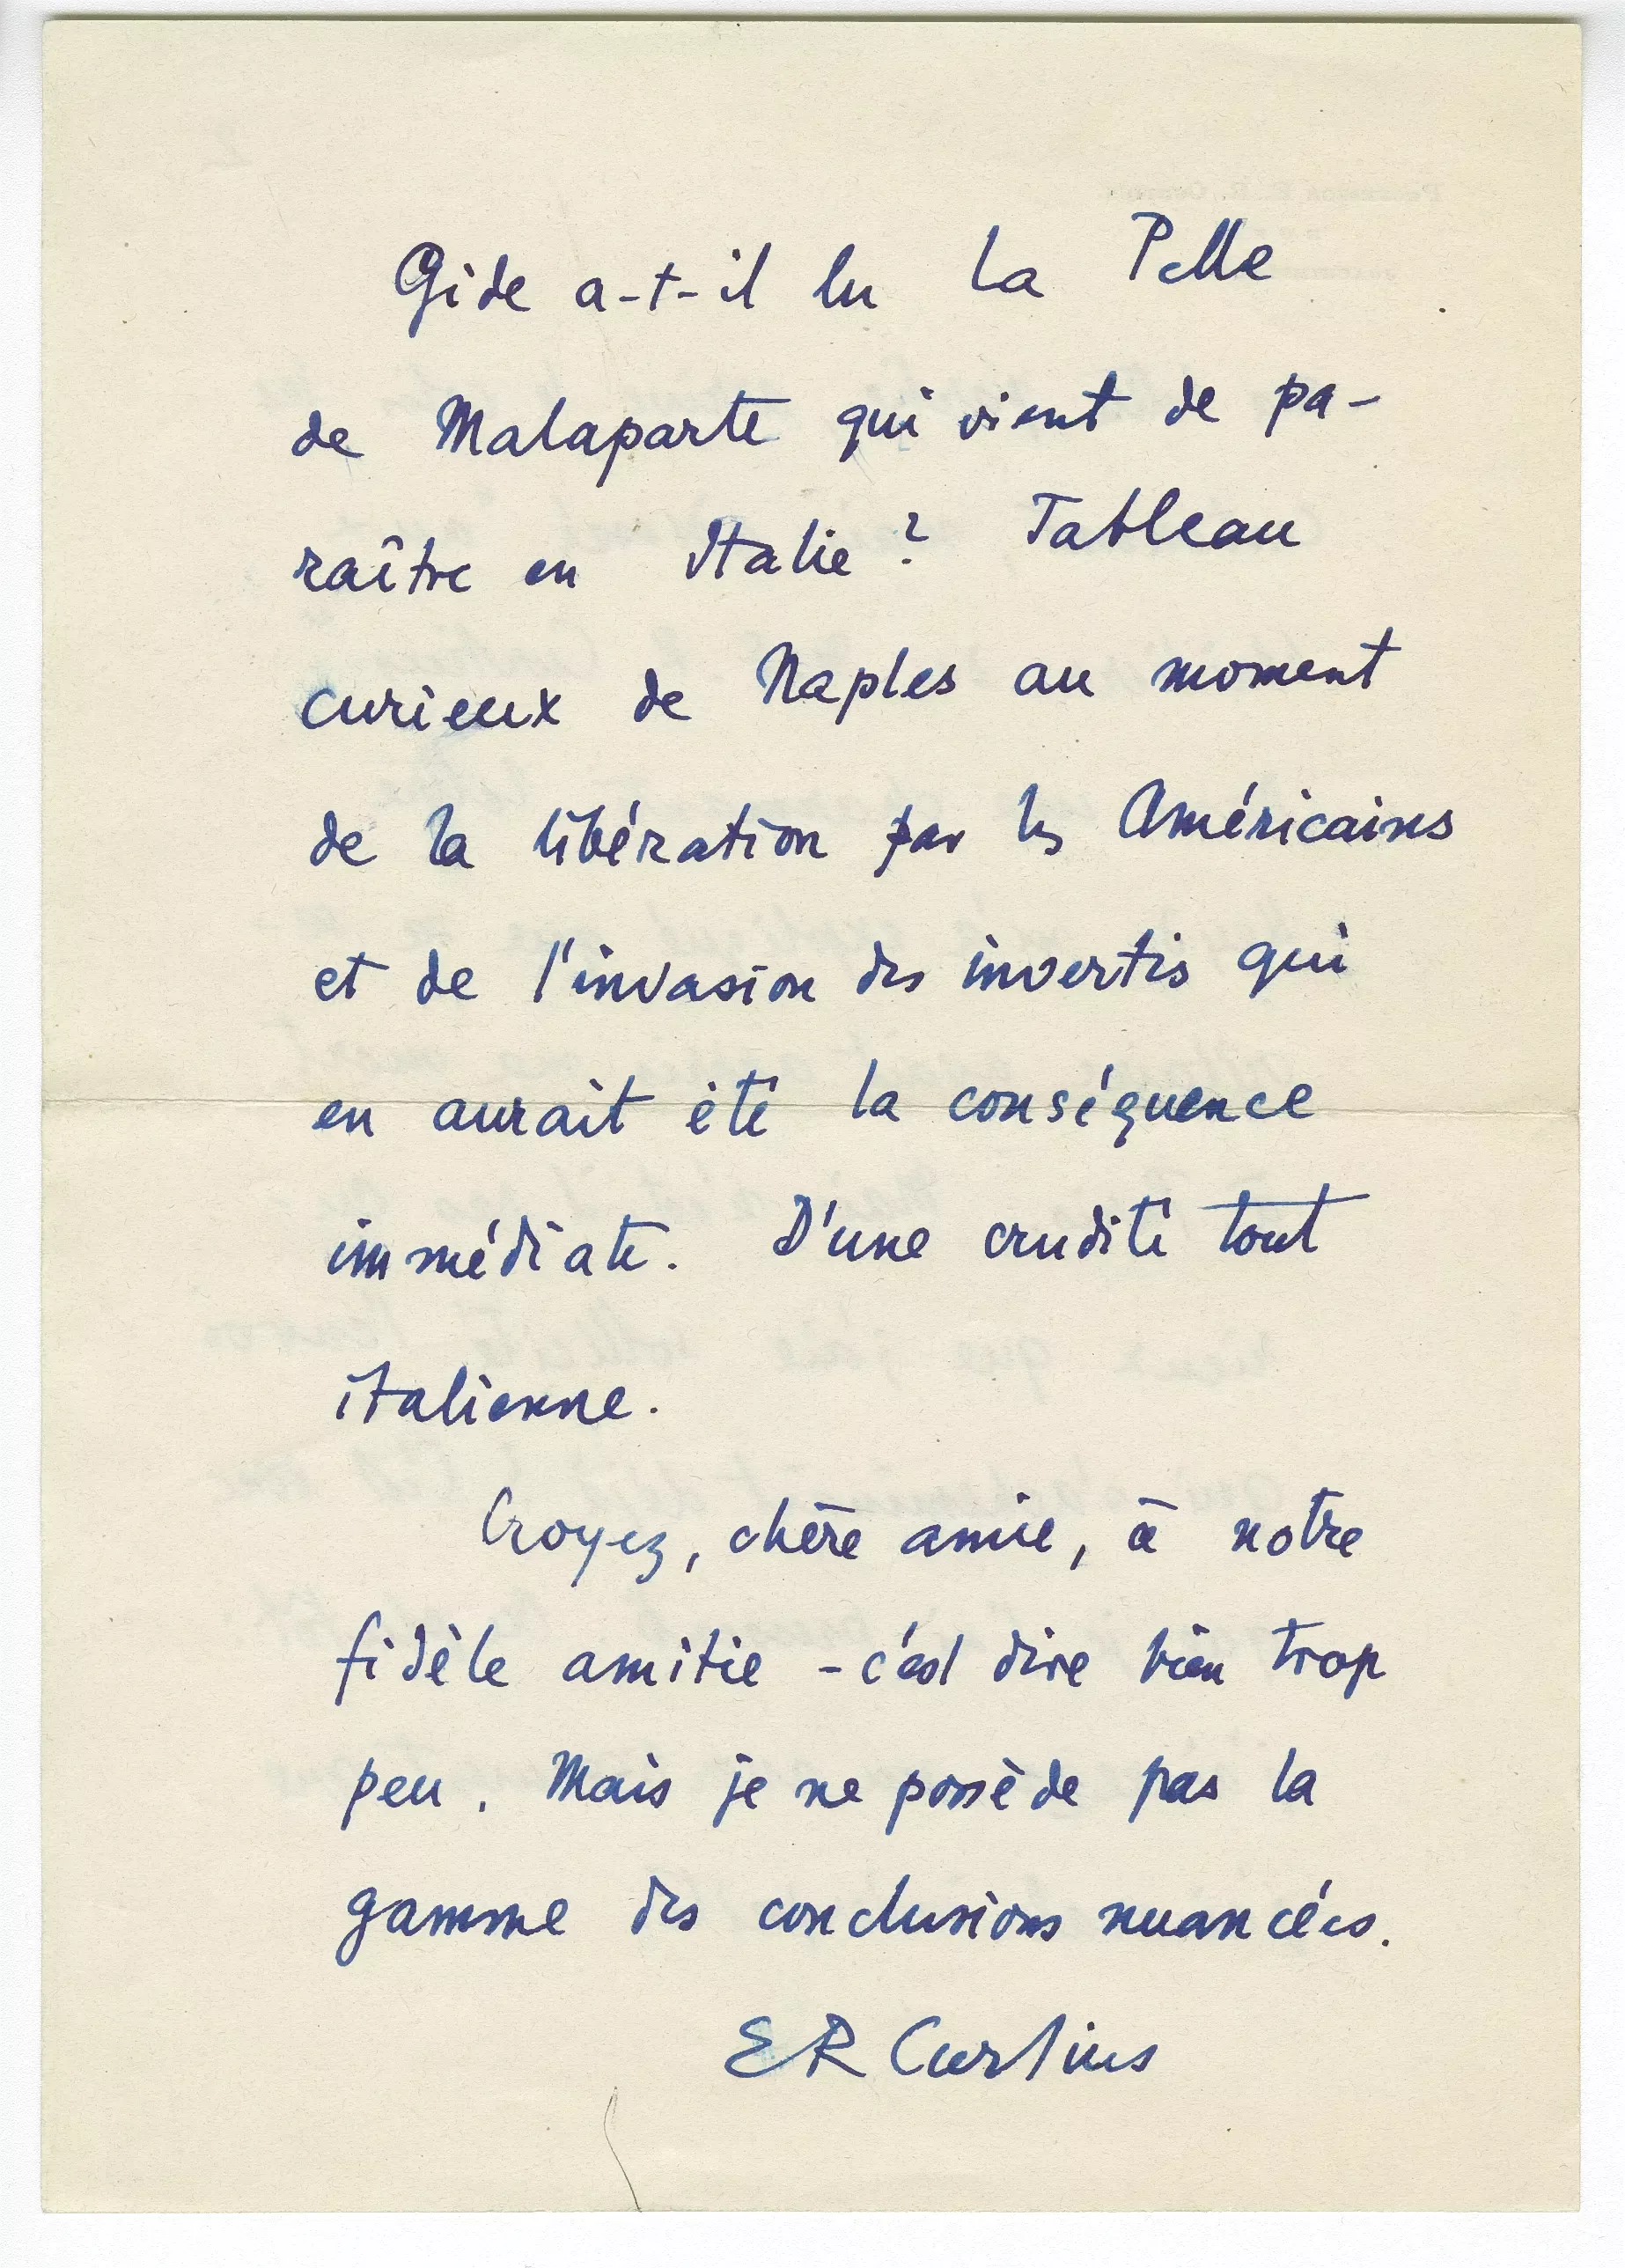 Gide a-t-il lu La Pelle
de Malaparte qui vient de pa-
raître en Italie ? Tableau
curieux de Naples au moment
de la libération par les Américains
et de l'invasion des invertis qui
en aurait été la conséquence
immédiate. D'une crudité tout
italienne.
Croyez, chère amie, à notre
fidèle amitié - c'est dire bien trop
peu. Mais je ne possède pas la
gamme des conclusions nuancées.
ER Curtius